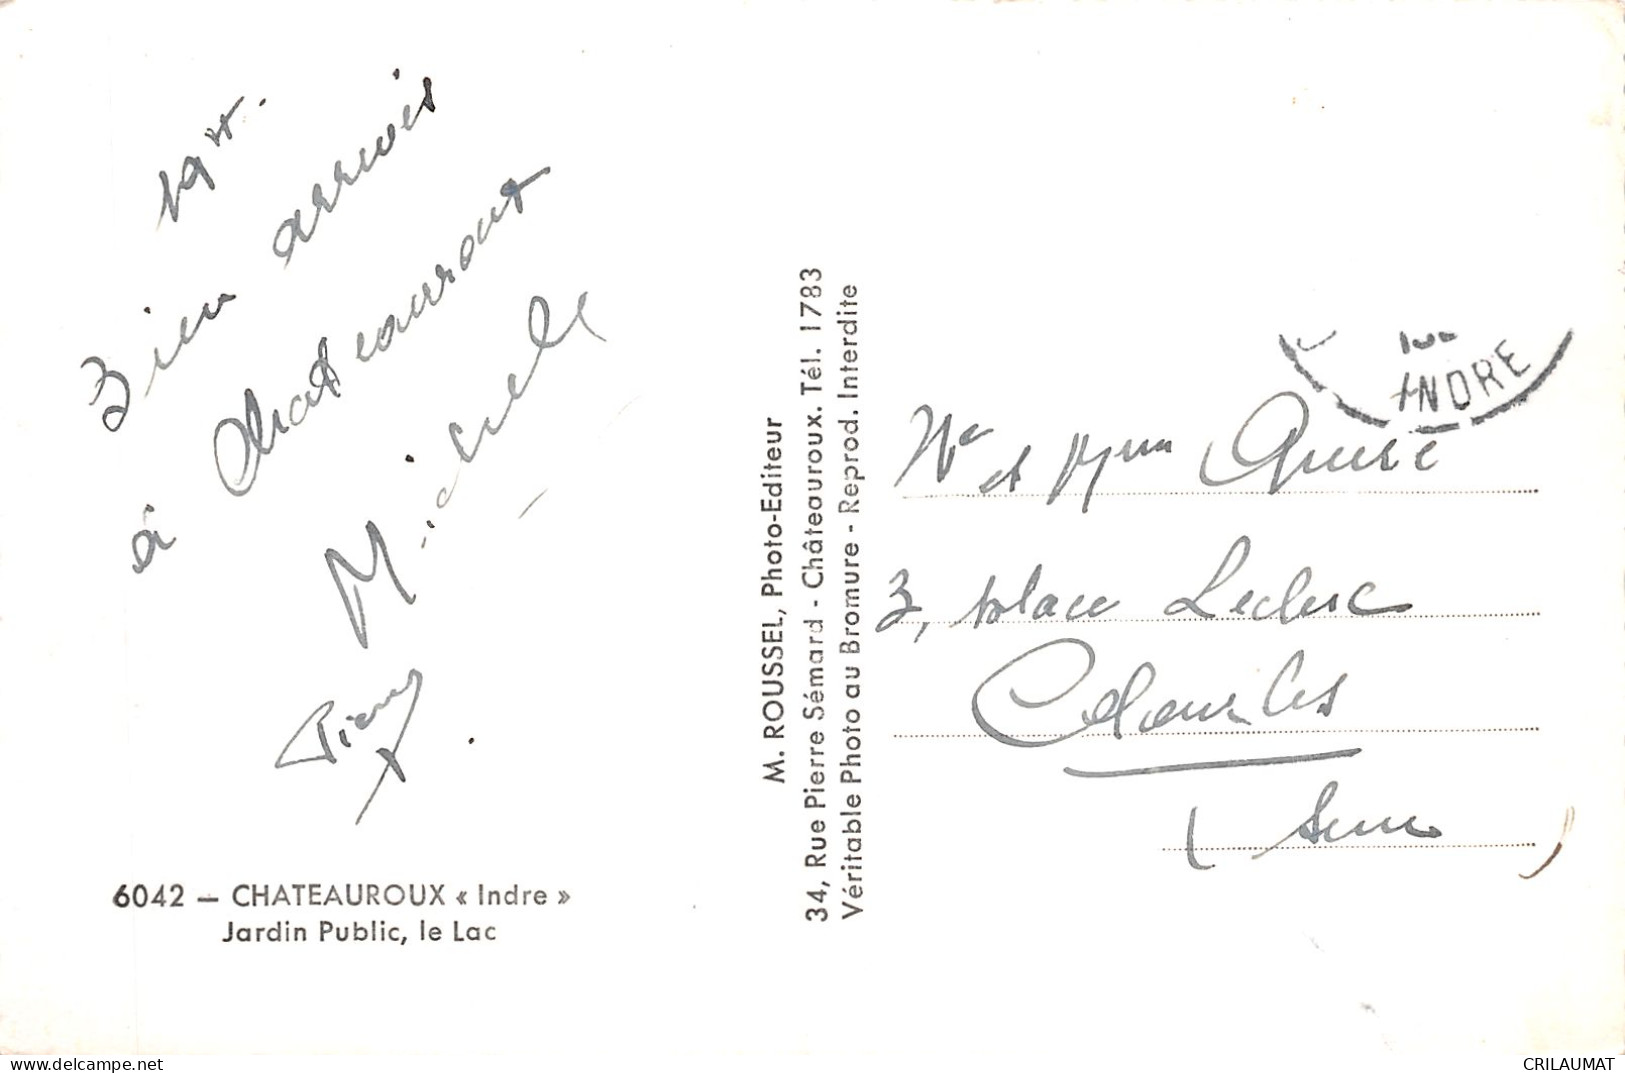 19 H.
Bien arrivés
à Chateauroux
Michel
6042 — CHATEAUROUX « Indre »
Jardin Public, le Lac
M. ROUSSEL, Photo-Editeur
34, Rue Pierre Sémard - Châteauroux. Tél. 1783
Véritable Photo au Bromure - Reprod. Interdite
INDRE
Mr et Mme
3, place Leclerc
Colombes
(Seine)
delcampe.net
CRILAUMAT